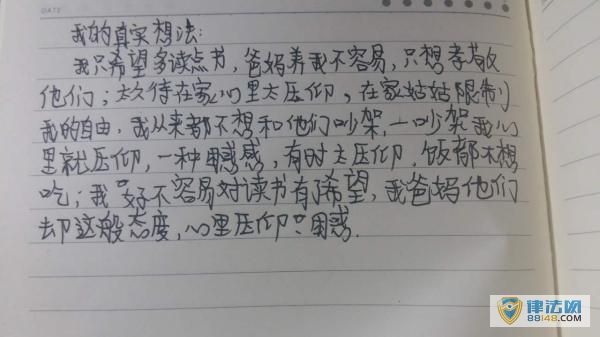 DATE
我的真实想法:
我只希望多读点书,爸妈养我不容易,只想孝敬
他们;太久待在家心里太压仰,在家姑姑限制
我的自由,我从来都不想和他们吵架,一吵架我心
里就压仰,一种困惑感,有时太压仰,饭都不想
吃;我好不容易对读书有了希望,我爸妈他们
却这般态度,心里压仰:困惑.
律法网
88148.com